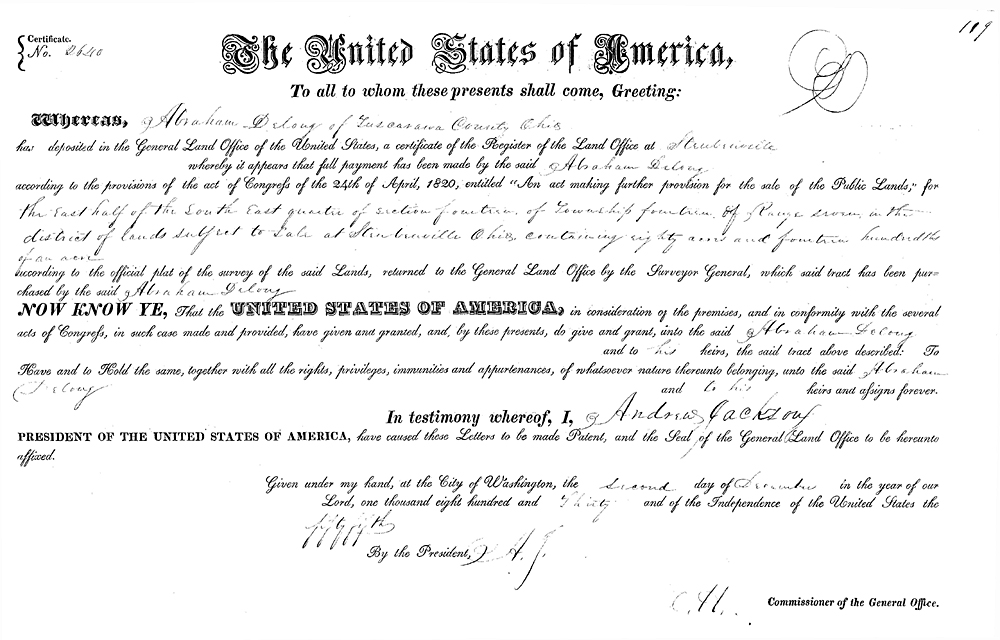 109
Certificate.
No. 2640
The United States of America,
To all to whom these presents shall come, Greeting:
Whereas, Abraham Delong of Tuscarawa County Ohio
has deposited in the General Land Office of the United States, a certificate of the Register of the Land Office at Steubenville
whereby it appears that full payment has been made by the said Abraham Delong
according to the provisions of the act of Congress of the 24th of April, 1820, entitled "An act making further provision for the sale of the Public Lands," for
the East half of the South East quarter of section fourteen, of Township fourteen, of Range seven, in the
district of lands subject to sale at Steubenville Ohio, containing eighty acres and fourteen hundredths
of an acre
according to the official plat of the survey of the said Lands, returned to the General Land Office by the Surveyor General, which said tract has been pur-
chased by the said Abraham Delong
NOW KNOW YE, That the UNITED STATES OF AMERICA, in consideration of the premises, and in conformity with the several
acts of Congress, in such case made and provided, have given and granted, and, by these presents, do give and grant, unto the said Abraham Delong
and to his heirs, the said tract above described: To
Have and to Hold the same, together with all the rights, privileges, immunities and appurtenances, of whatsoever nature thereunto belonging, unto the said Abraham
Delong and to his heirs and assigns forever.
In testimony whereof, I, Andrew Jackson
PRESIDENT OF THE UNITED STATES OF AMERICA, have caused these Letters to be made Patent, and the Seal of the General Land Office to be hereunto
affixed.
Given under my hand, at the City of Washington, the second day of December in the year of our
Lord, one thousand eight hundred and Thirty and of the Independence of the United States the
fifty fifth
By the President, A. J.
Commissioner of the General Office.